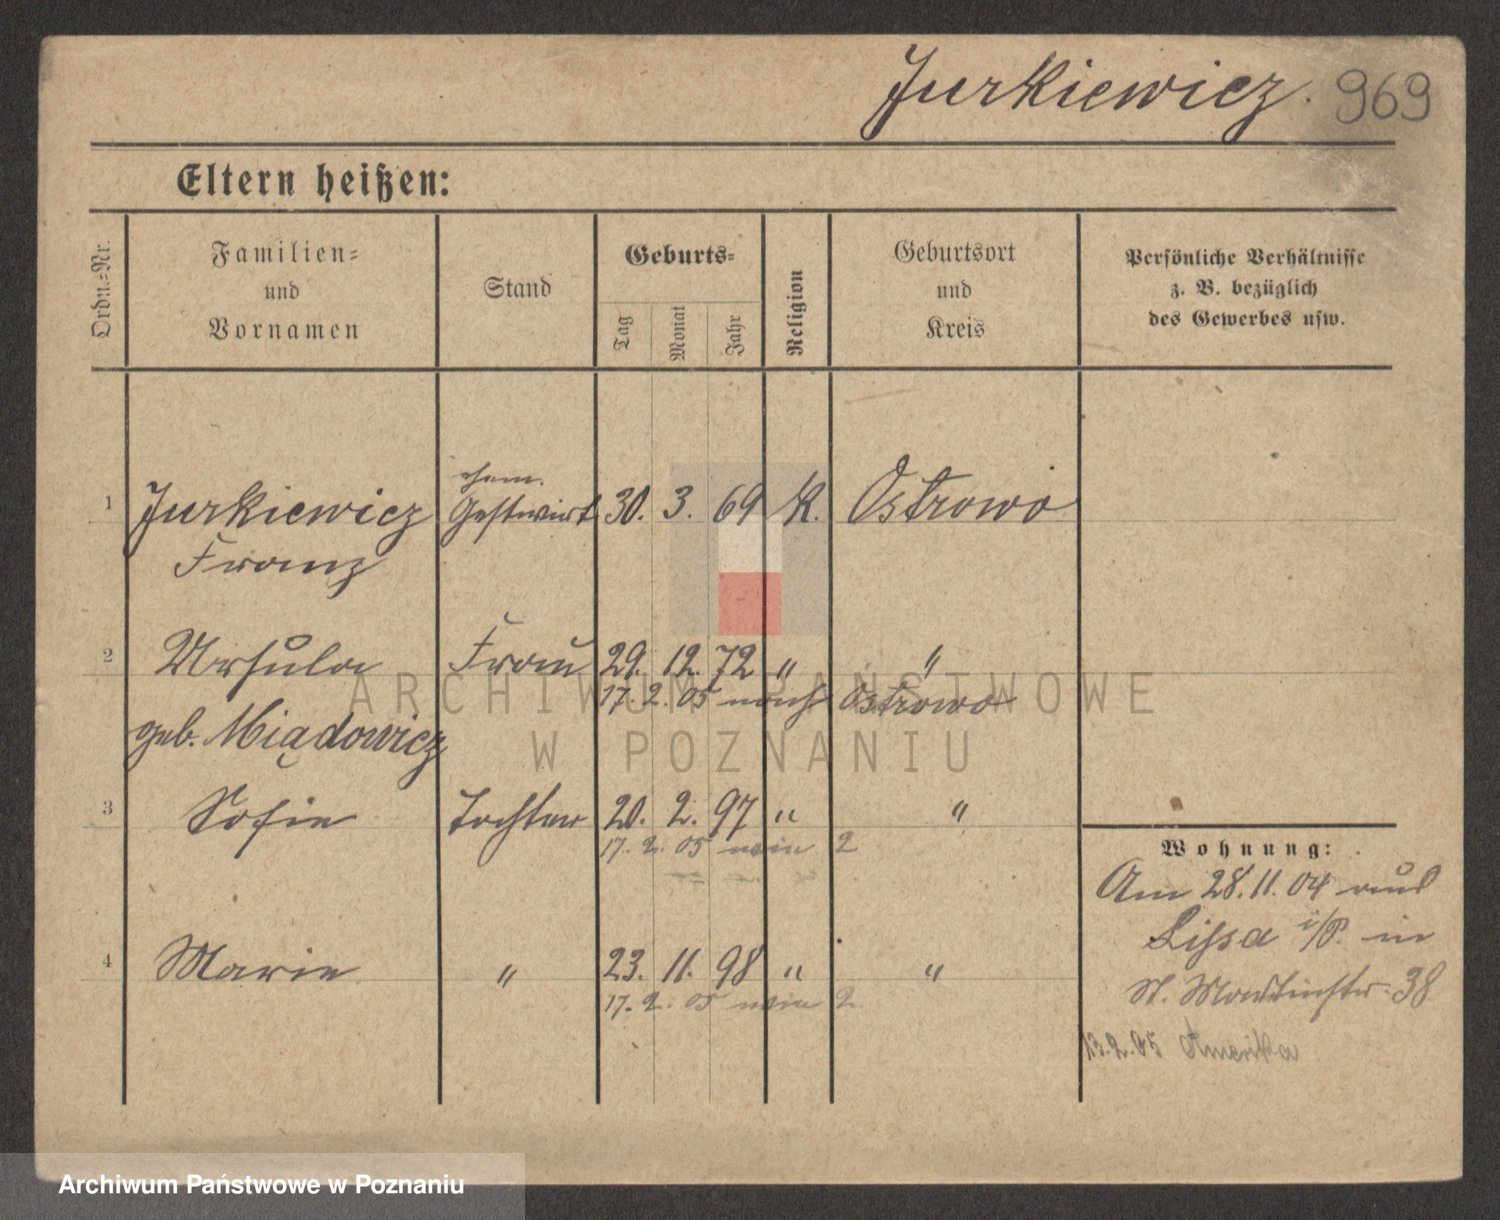 Jurkiewicz. 969
Eltern heißen:
Ordn.-Nr.
Familien-
und
Vornamen
Stand
Geburts-
Tag
Monat
Jahr
Religion
Geburtsort
und
Kreis
Persönliche Verhältnisse
z. B. bezüglich
des Gewerbes usw.
ehem.
1 Jurkiewicz Gastwirt 30. 3. 69 K. Ostrowo
Franz
2 Ursula Frau 29. 12. 72 " "
17. 2. 05 nach Ostrowo
geb. Miądowicz
3 Sofie Tochter 20. 2. 97 " "
17. 2. 05 wie 2
4 Marie " 23. 11. 98 " "
17. 2. 05 wie 2
Wohnung:
Am 28.11.04 aus
Lissa i/P. in
St. Martinstr. 38
13.2.05 Amerika
ARCHIWUM PAŃSTWOWE
W POZNANIU
Archiwum Państwowe w Poznaniu